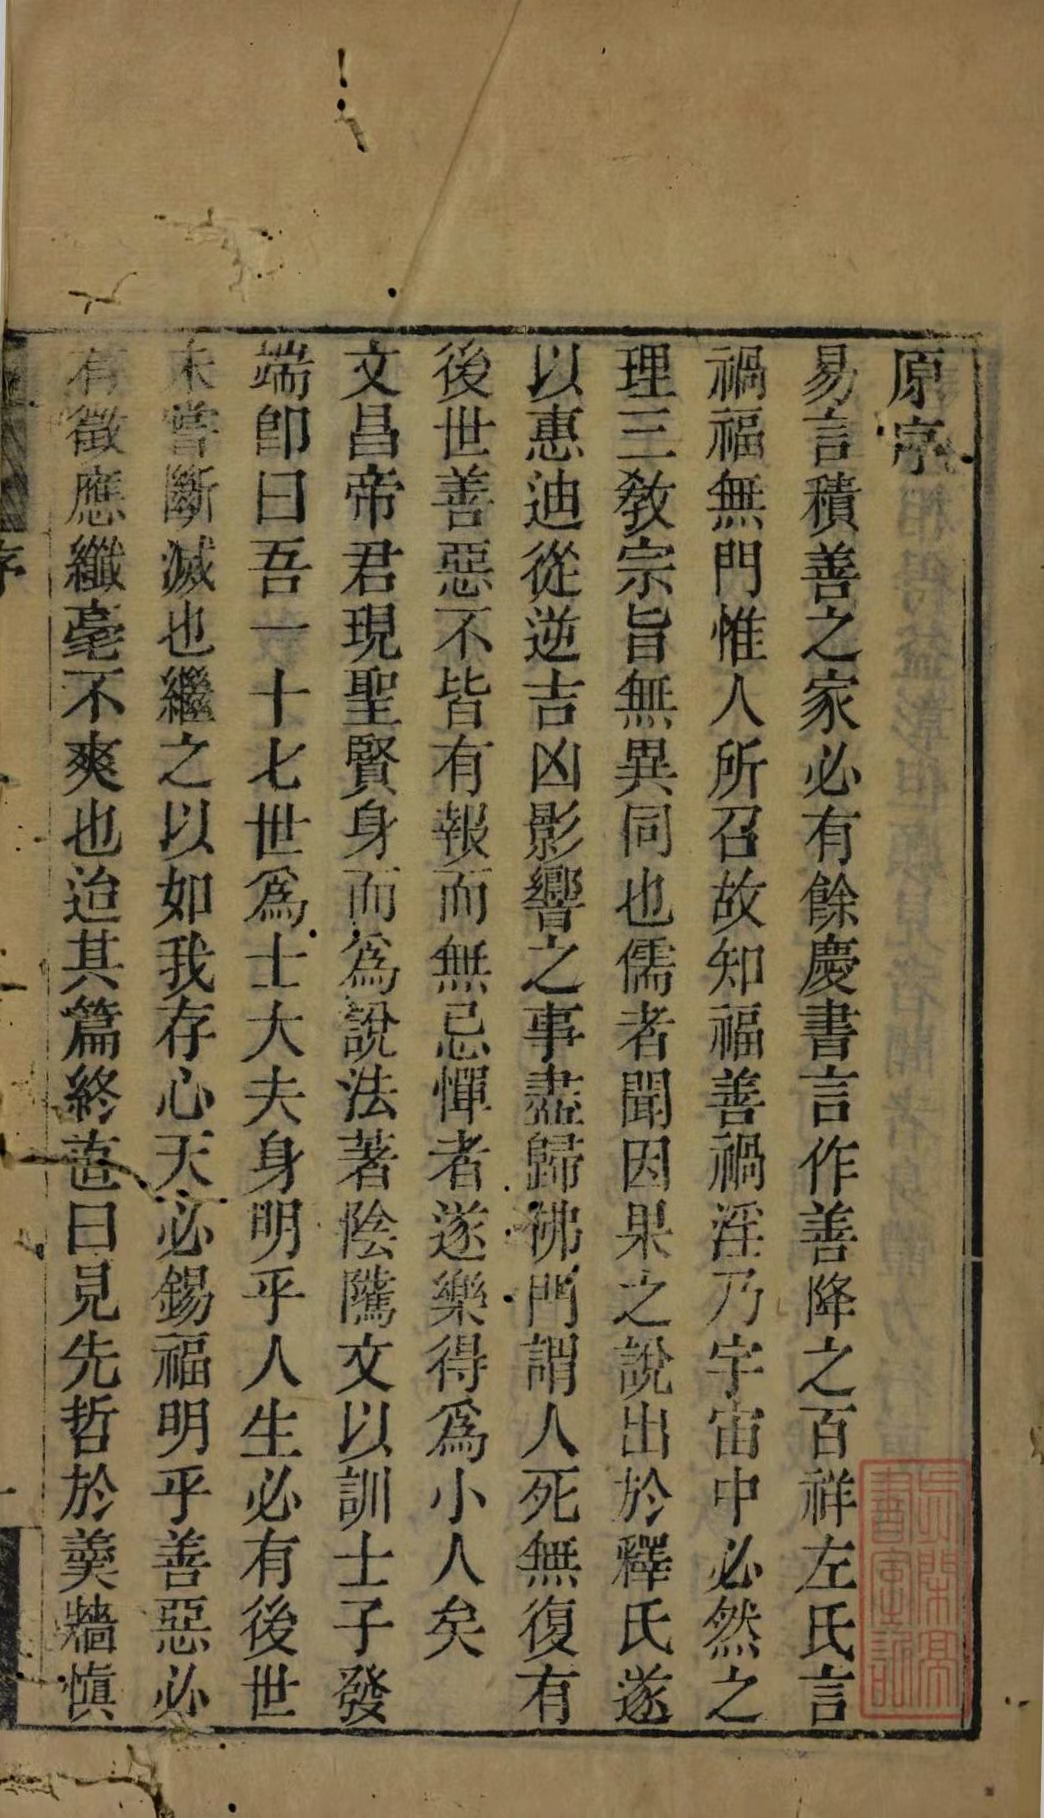 原序
易言積善之家必有餘慶書言作善降之百祥左氏言
禍福無門惟人所召故知福善禍淫乃宇宙中必然之
理三教宗旨無異同也儒者聞因果之說出於釋氏遂
以惠迪從逆吉凶影響之事盡歸彿門謂人死無復有
後世善惡不皆有報而無忌憚者遂樂得爲小人矣
文昌帝君現聖賢身而爲說法著陰隲文以訓士子發
端卽曰吾一十七世爲士大夫身明乎人生必有後世
未嘗斷滅也繼之以如我存心天必錫福明乎善惡必
有徵應纖毫不爽也迨其篇終壹曰見先哲於羹牆愼
序